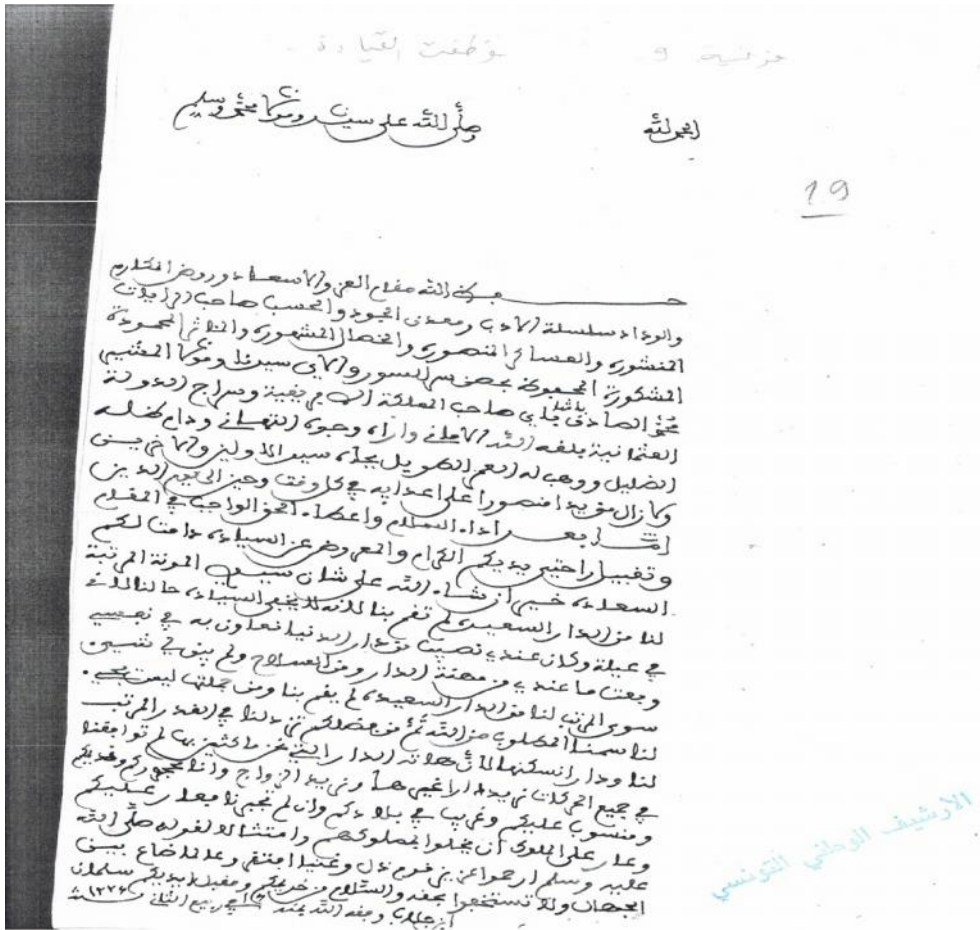 وظفت القيادة
الحمد لله وصلى الله على سيدنا ومولانا محمد وسلم
19
الله مقام العز والاسعاد وروض المكارم
والوداد سلسلة الادب ومعدن الجود والحسب صاحب الرايات
المنشورة والعساكر المنصورة والخصال المشهورة والمآثر المحمودة
المشكورة بمحض سر السور والآي سيدنا ومولانا المشير
محمد الصادق باشا باي صاحب المملكة الافريقية وسراج الدولة
العثمانية بلغه الله الاماني وأراه وجوه التهاني ودام ظله
الظليل ووهب له العمر الطويل بجاه سيد الاولين والآخرين
ولا زال مؤيدا منصورا على اعدايه في كل وقت وحين الى يوم الدين
اما بعد اداء السلام واعطاء الحق الواجب في المقام
وتقبيل راحتي يديكم الكرام والمعروض عن السيادة دامت لكم
السعادة خير ان شاء الله على شان سيدي المونة المرتبة
لنا من الدار السعيدة لم تقم بنا لانه لا يخفى السيادة حالنا
في عيلة وكان عندي نصيب من دار الدنيا نعاون به في نفسي
وبعت ما عندي من مهنة الدار ومن السلاح ولم يبق لي شيء
سوى المرتب لنا من الدار السعيدة لم يقم بنا ومن جملتها ليس يجي
لنا سمنا المطلوب من الله ثم من فضلكم تزيدلنا في القدر المرتب
لنا ودار نسكنها لأن هاته الدار التي نحن ماكثين بها لم توافقنا
في جميع الحركات نريد دارا غيرها ونريد الزواج وانا وخديمكم
ومنسوب عليكم وغريب في بلادكم وان لم تجبرنا فعار عليكم
وعار على الملوك أن يخلوا مملوكهم وامتثالا لقوله صلى الله
عليه وسلم ارحموا عزيز قوم ذل وغنيا افتقر وعالما ضاع بين
الجهال ولا تستخفوا بحقه والسلام من خديمكم ومقبل يديكم سلمان
وفقه الله بمنه ربيع الثاني سنة ١٢٧٦
الأرشيف الوطني التونسي